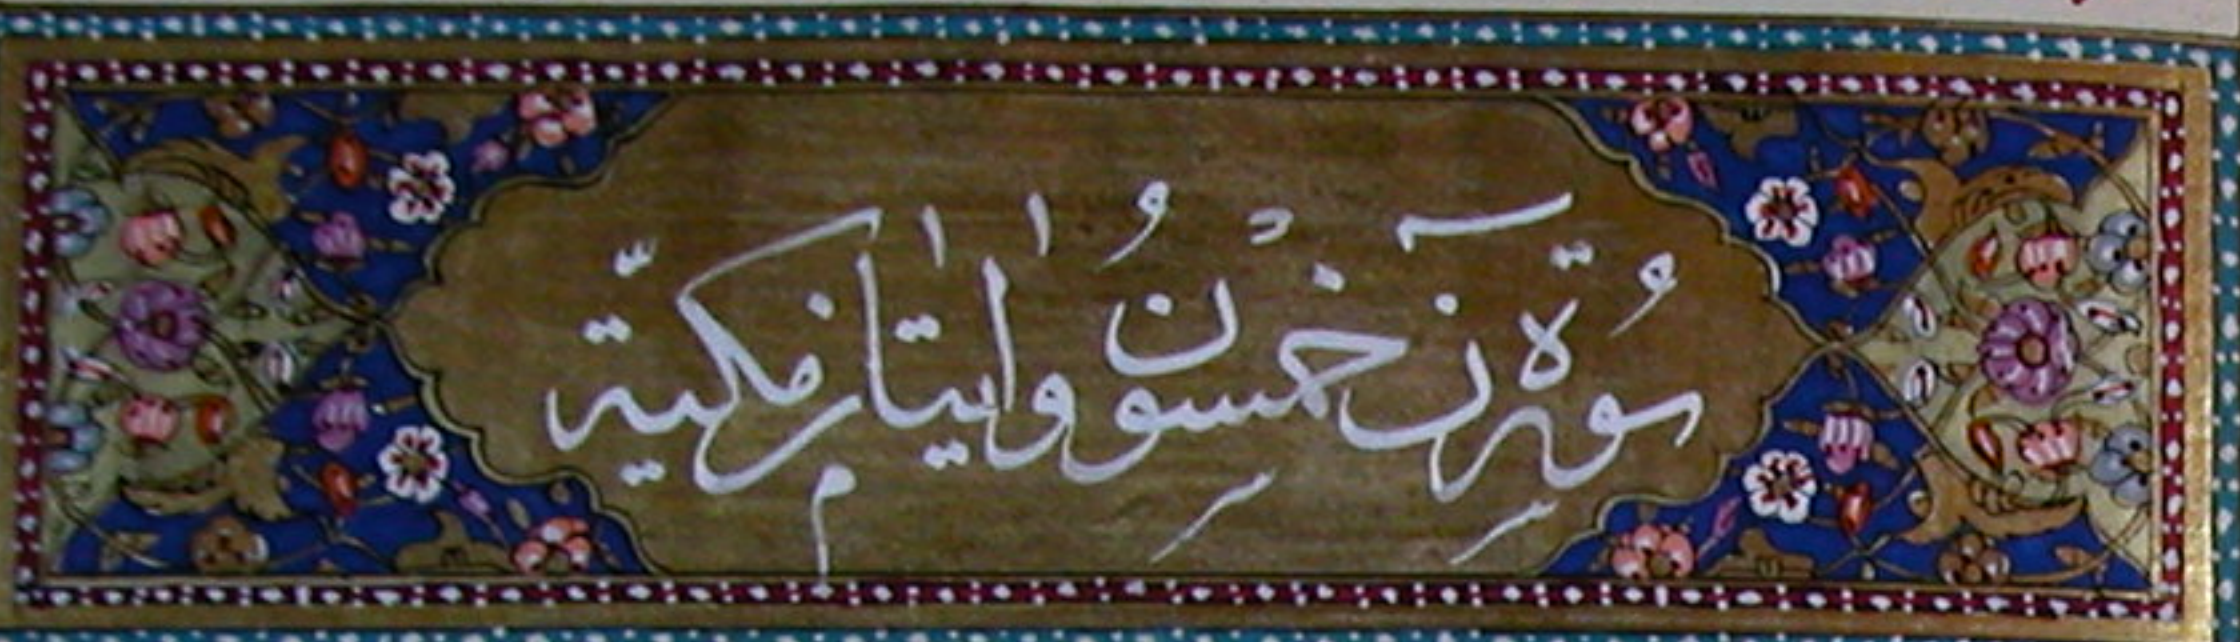 سُورة نٓ خمسون وايتان مكيّة